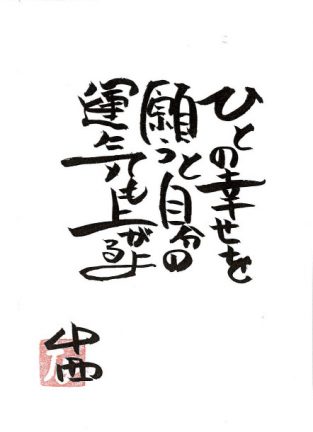 ひとの幸せを
願うと自分の
運気も上がるよ
中西